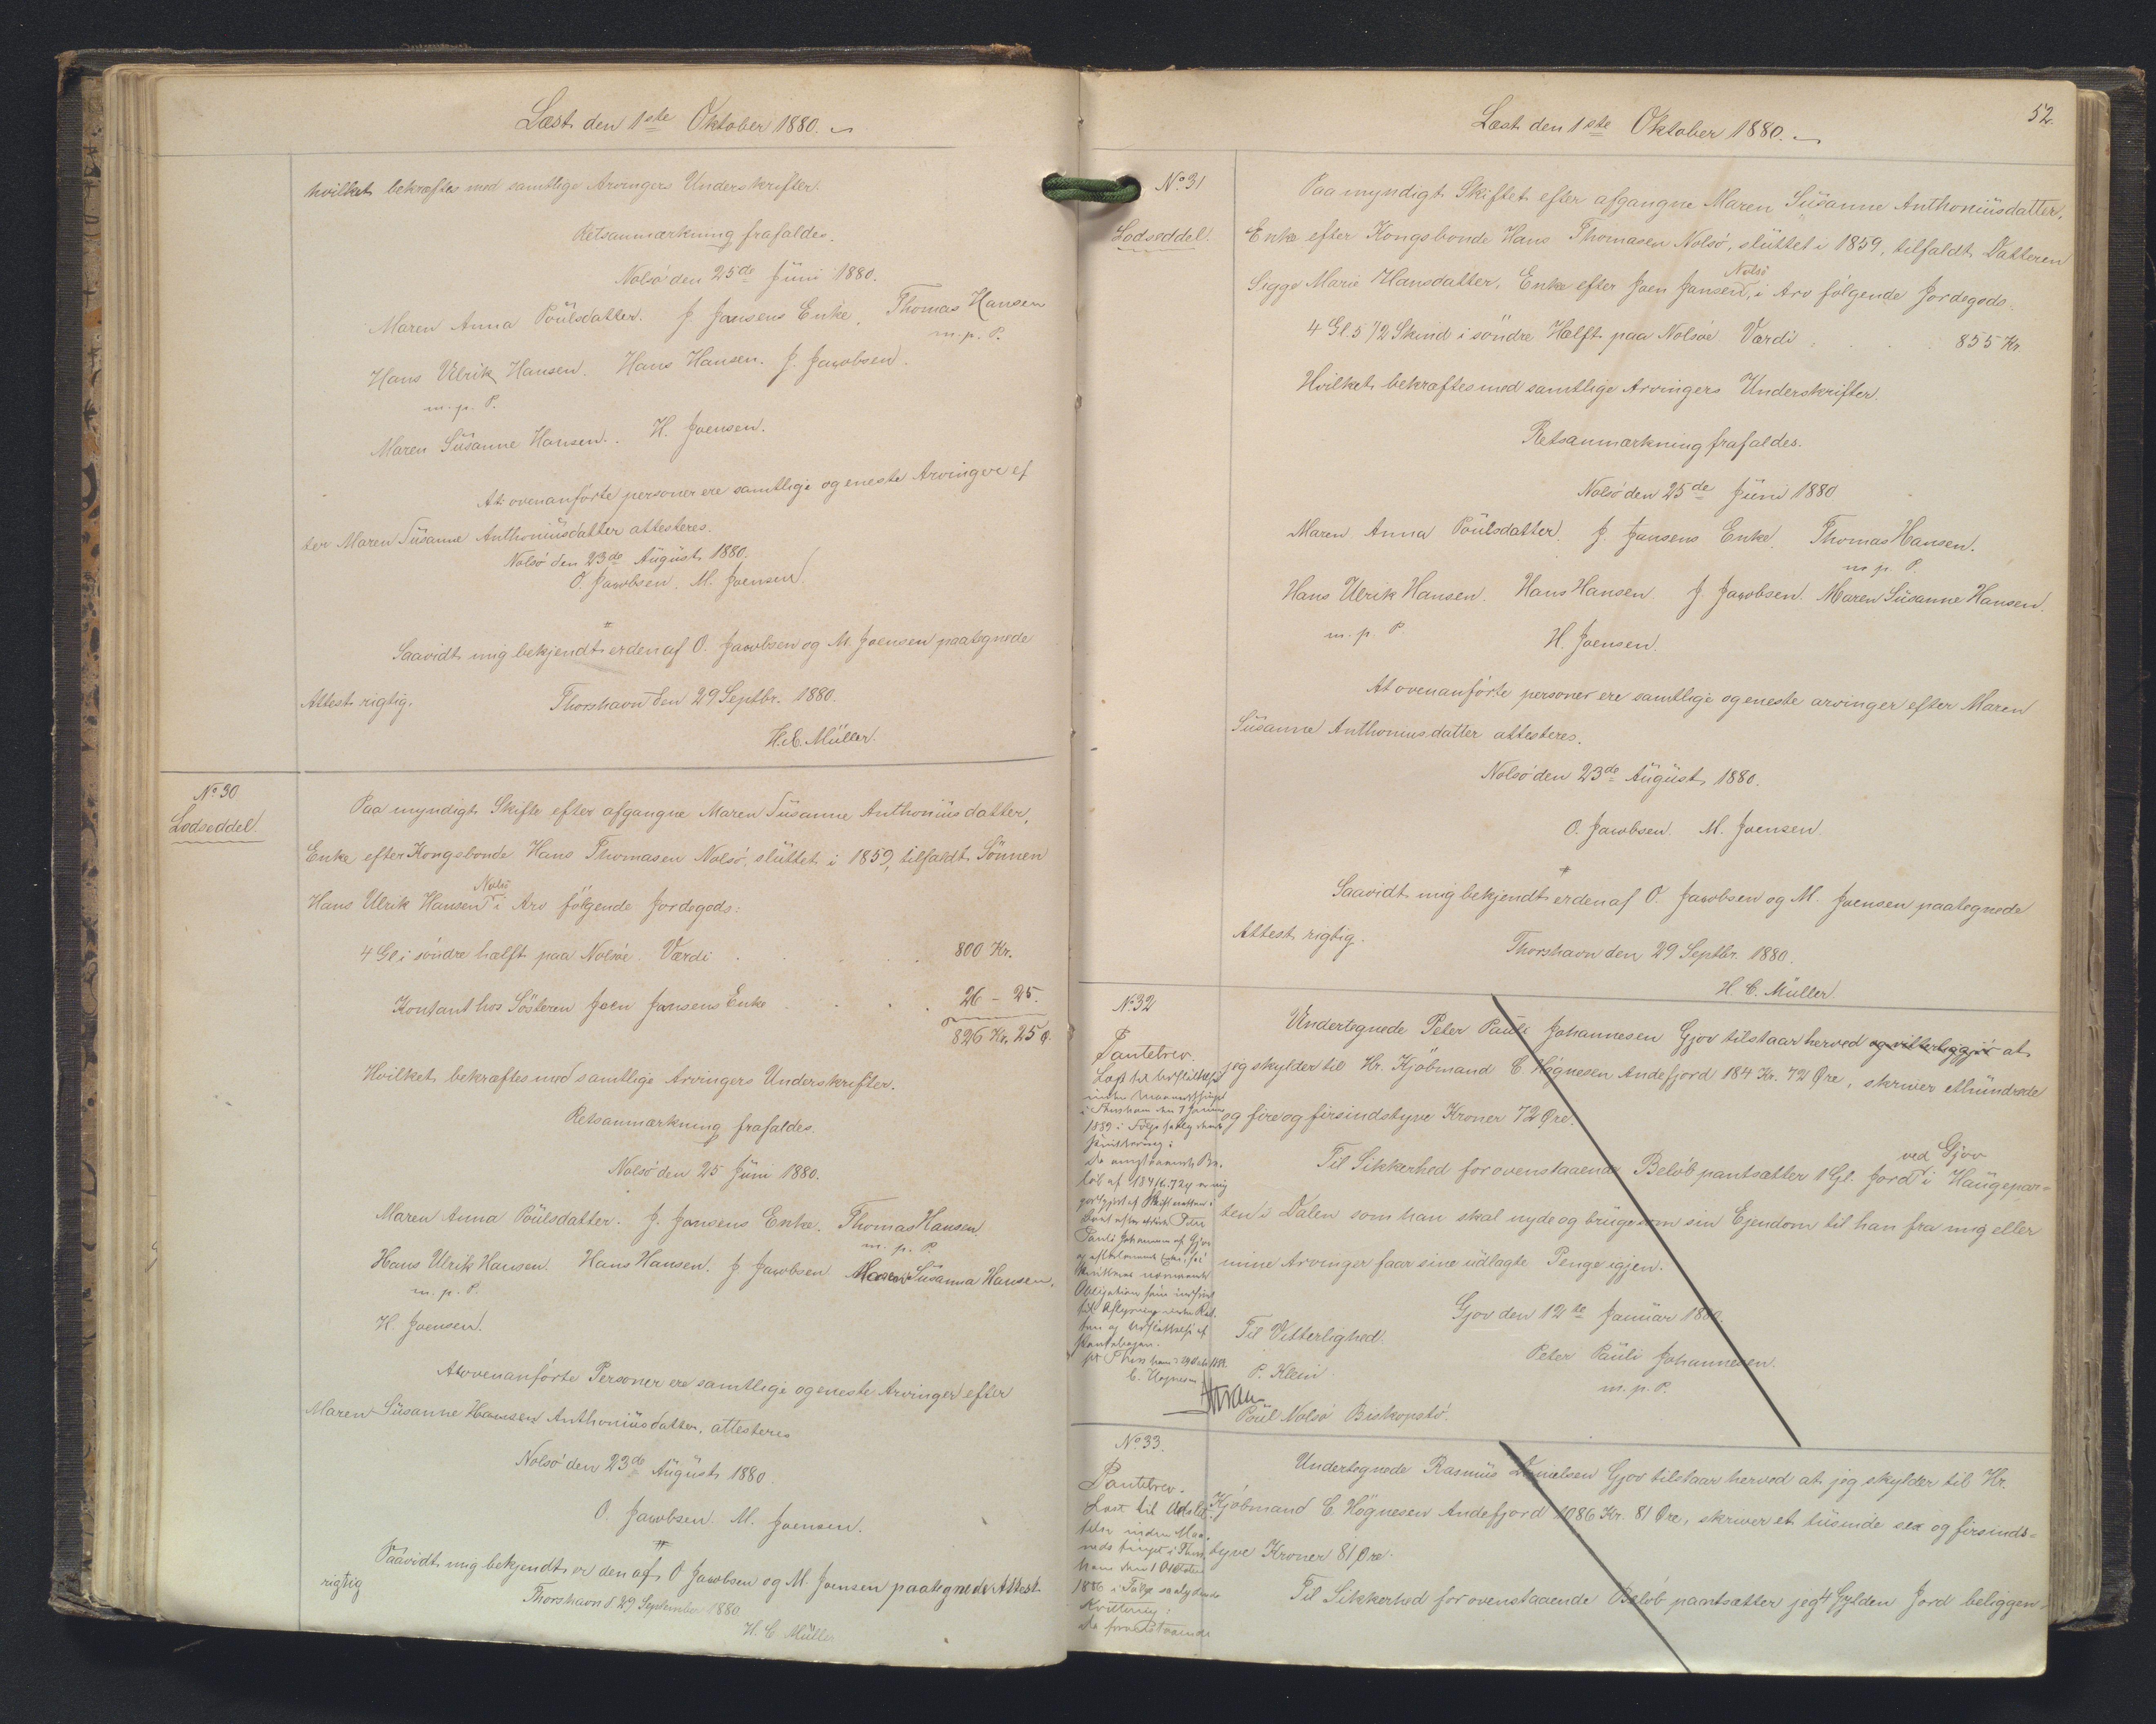 Læst den 1ste Oktober 1880.
hvilket bekræftes med samtlige Arvingers Underskrifter.
Retsanmærkning frafaldes.
Nolsö den 25de Juni 1880.
Maren Anna Poülsdatter. J. Jansens Enke. Thomas Hansen
m. p. P.
Hans Ulrik Hansen. Hans Hansen. J. Jacobsen.
m. p. P.
Maren Süsanne Hansen. H. Joensen.
At ovenanförte personer ere samtlige og eneste Arvinger ef
ter Maren Süsanne Anthoniüsdatter attesteres.
Nolsö den 23de Aügüst 1880.
O. Jacobsen. M. Joensen.
Saavidt mig bekjendt er den af O. Jacobsen og M. Joensen paategnede
Attest rigtig.
Thorshavn den 29 Septbr. 1880.
H. C. Müller.
No. 30
Lodseddel.
Paa myndigt Skifte efter afgangne Maren Süsanne Anthoniüsdatter,
Enke efter Kongsbonde Hans Thomasen Nolsö, slüttet i 1859, tilfaldt Sönnen
Nolsö
Hans Ulrik Hansen i Arv fölgende Jordegods:
4 Gl. i söndre hælft paa Nolsöe. Værdi . . . . 800 Kr.
Kontant hos Sösteren Joen Jansens Enke . . . 26 - 25.
826 Kr. 25 Ø.
Hvilket bekræftes med samtlige Arvingers Underskrifter.
Retsanmærkning frafaldes.
Nolsö den 25 Jüni 1880.
Maren Anna Poülsdatter. J. Jansens Enke. Thomas Hansen
m. p. P.
Hans Ulrik Hansen. Hans Hansen. J. Jacobsen Maren Süsanna Hansen.
m. p. P.
H. Joensen.
At ovenanförte Personer ere samtlige og eneste Arvinger efter
Maren Süsanne Hansen Anthoniüsdatter, attesteres
Nolsö den 23de Aügüst 1880.
O. Jacobsen. M. Joensen.
Saavidt mig bekjendt er den af O Jacobsen og M. Joensen paategnede Attest
rigtig
Thorshavn d. 29 September 1880.
H. C Müller
Læst den 1ste Oktober 1880.
52.
No. 31
Lodseddel.
Paa myndigt Skiftet efter afgangne Maren Süsanne Anthoniüsdatter,
Enke efter Kongsbonde Hans Thomasen Nolsö, slüttet i 1859, tilfaldt Datteren
Nolsö
Sigge Marie Hansdatter, Enke efter Joen Jansen, i Arv fölgende Jordegods
4 Gl. 5 1/2 Skind i söndre Hælft paa Nolsöe Værdi . . . 855 Kr.
Hvilket bekræftes med samtlige Arvingers Underskrifter.
Retsanmærkning frafaldes.
Nolsö den 25de Jüni 1880
Maren Anna Poülsdatter. J. Jansens Enke. Thomas Hansen.
m. p. P.
Hans Ulrik Hansen. Hans Hansen. J. Jacobsen. Maren Süsanne Hansen.
m. p. P.
H. Joensen.
At ovenanförte personer ere samtlige og eneste arvinger efter Maren
Süsanne Anthoniusdatter attesteres.
Nolsö den 23de Aügüst 1880.
O. Jacobsen. M. Joensen.
Saavidt mig bekjendt er den af O. Jacobsen og M. Joensen paategnede
Attest rigtig.
Thorshavn den 29 Septbr. 1880.
H. C. Müller.
No. 32
Pantebrev.
Undertegnede Peter Pauli Johannesen Gjov tilstaar herved og vitterliggjör at
jeg skylder til Hr. Kjöbmand C Högnesen Andefjord 184 Kr. 72 Øre, skriver et hündrede
og fire og firsindstyve Kroner 72 Øre.
ved Gjov
Til Sikkerhed for ovenstaaende Belöb pantsætter 1 Gl. Jord i Haügepar-
ten i Dalen som han skal nyde og brüge som sin Ejendom til han fra mig eller
mine Arvinger faar sine üdlagte Penge igjen.
Gjov den 12te Januar 1880.
Til Vitterlighed.
Peter Paüli Johannesen.
m. p. P.
P. Klein
Poül Nolsö Biskopstö.
No. 33.
Pantebrev.
Læst til Udslet-
telse inden Maa-
neds tinget i Thors
havn den 1 Oktober
1886 i Følge saalydende
Kvittering:
Undertegnede Rasmüs Danielsen Gjov tilstaar herved at jeg skylder til Hr.
Kjöbmand C. Högnesen Andefjord 1086 Kr. 81 Øre, skriver et tüsinde sex og firsinds-
tyve Kroner 81 Øre.
Til Sikkerhed for ovenstaaende Belöb pantsætter jeg 4 Gylden Jord beliggen-